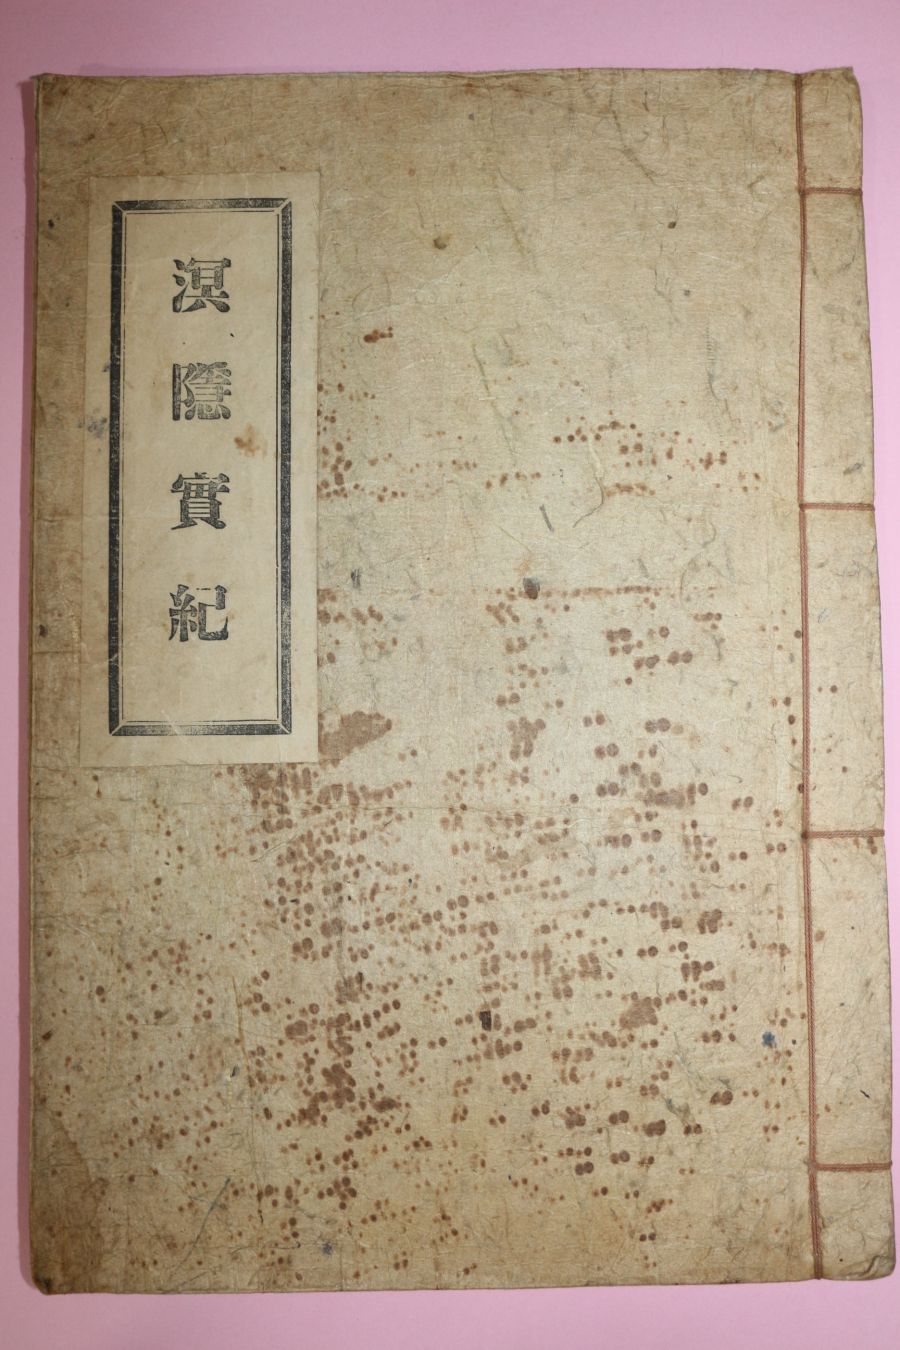 溟隱實紀